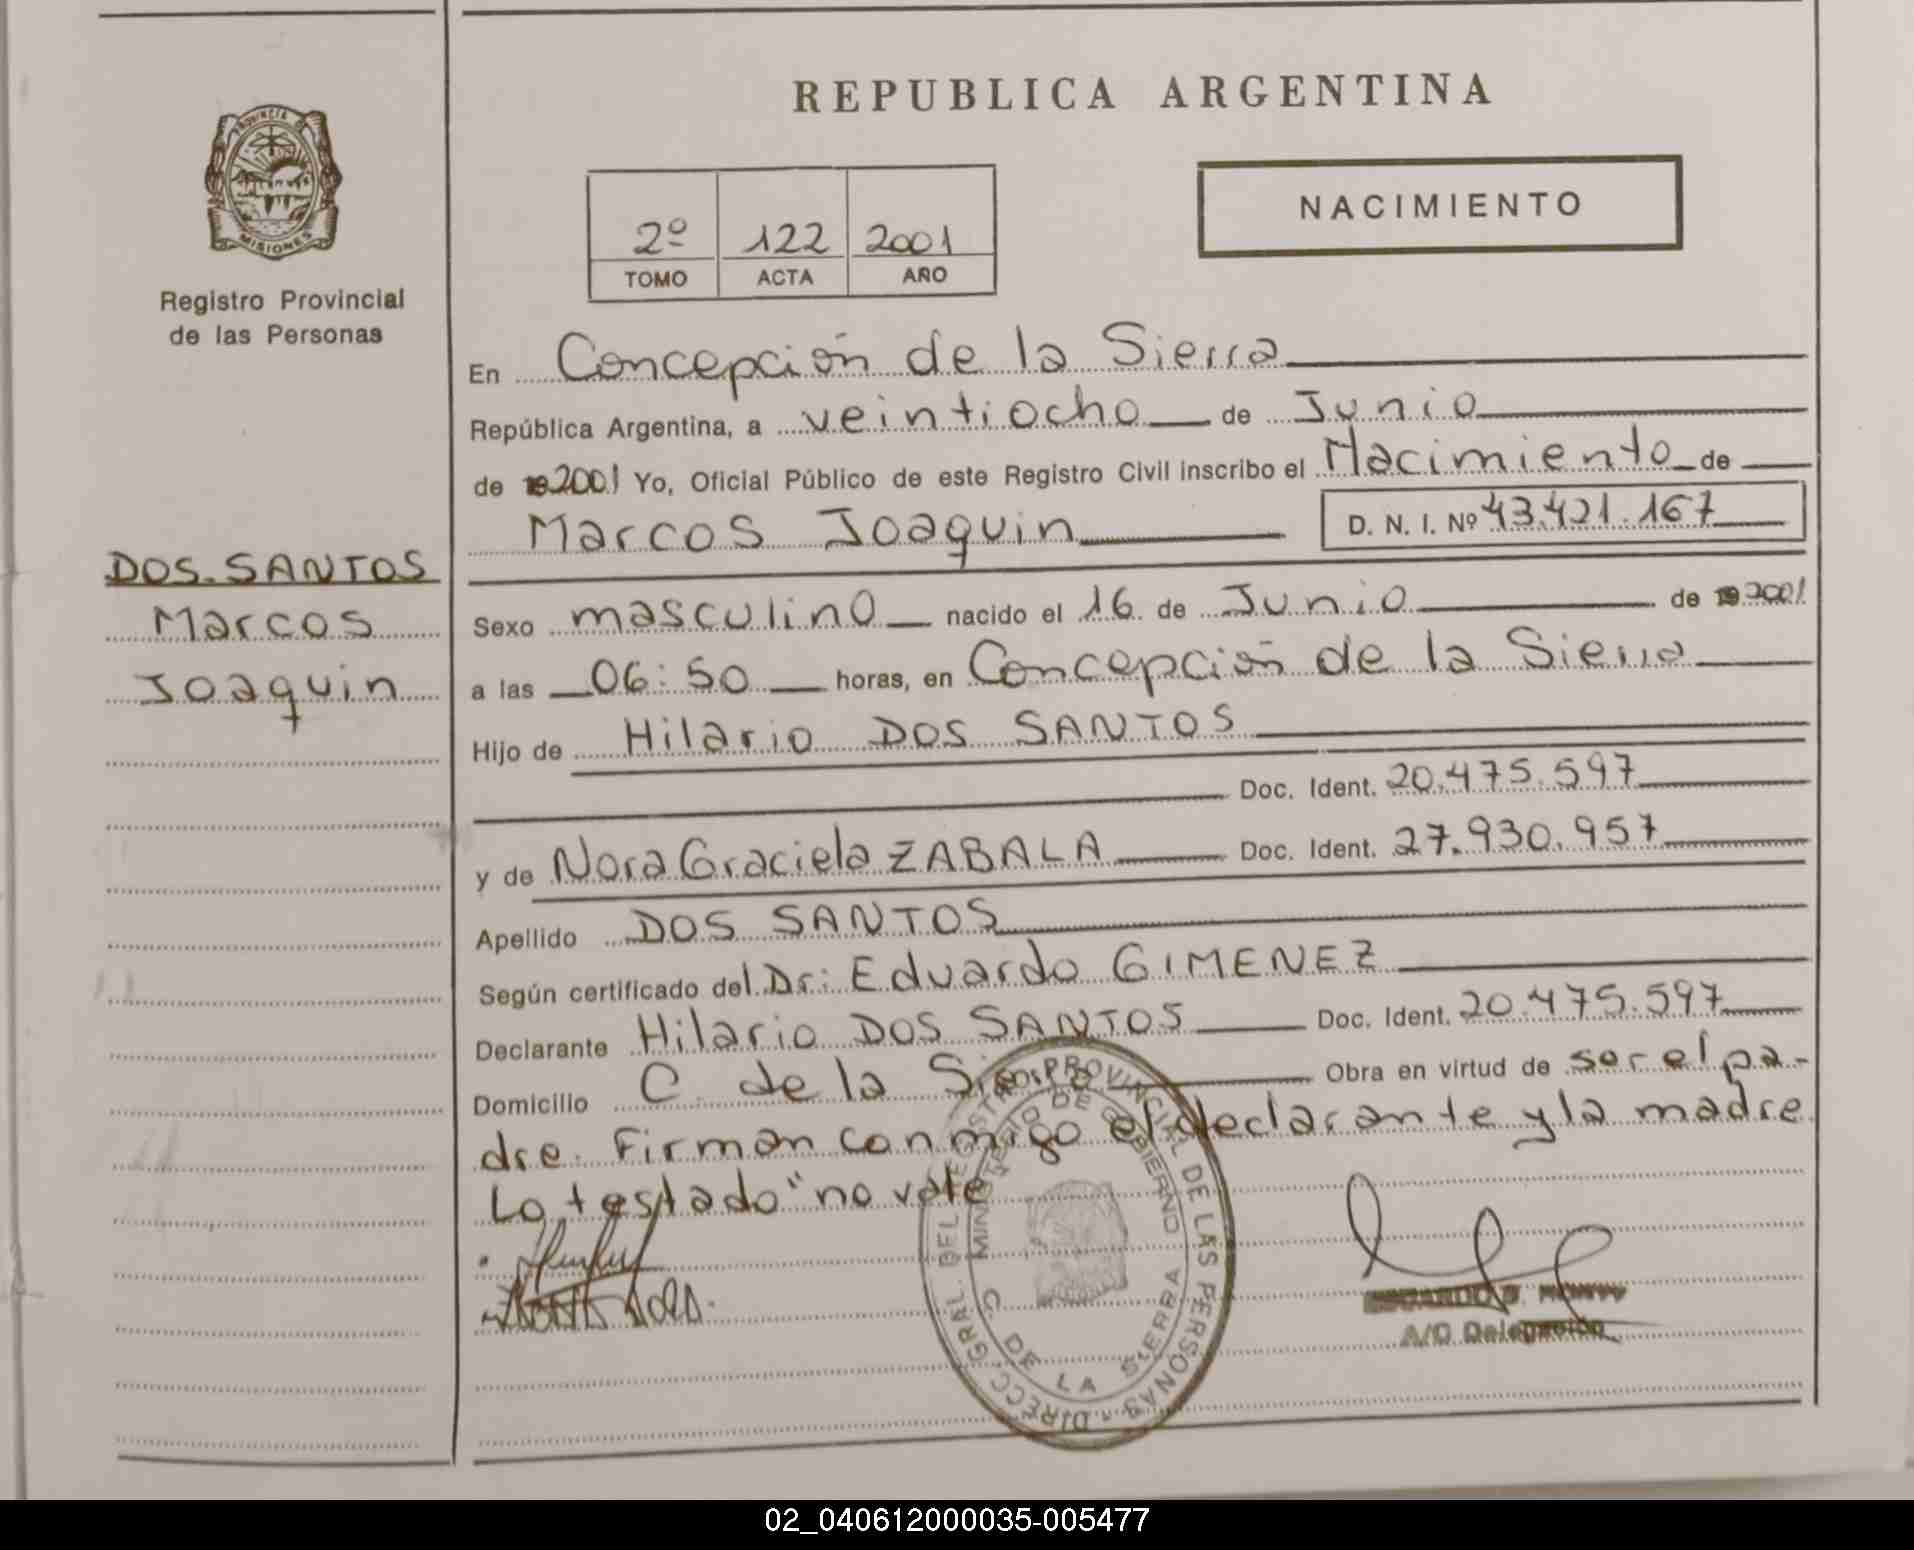 REPUBLICA ARGENTINA
PROVINCIA DE
MISIONES
Registro Provincial
de las Personas
NACIMIENTO
2º 122 2001
TOMO ACTA AÑO
En Concepción de la Sierra
República Argentina, a veintiocho de Junio
de 2001 Yo, Oficial Público de este Registro Civil inscribo el Nacimiento de
Marcos Joaquin D. N. I. Nº 43.421.167
DOS SANTOS
Marcos
Joaquin
Sexo masculino nacido el 16 de Junio de 2001
a las 06:50 horas, en Concepción de la Sierra
Hijo de Hilario DOS SANTOS
Doc. Ident. 20.475.597
y de Nora Graciela ZABALA Doc. Ident. 27.930.957
Apellido DOS SANTOS
Según certificado del Dr: Eduardo GIMENEZ
Declarante Hilario DOS SANTOS Doc. Ident. 20.475.597
Domicilio C. de la Sierra Obra en virtud de ser el pa-
dre. Firman conmigo el declarante y la madre.
Lo testado "no vale
DIRECC. GRAL. DEL REGISTRO PROVINCIAL DE LAS PERSONAS
MINISTERIO DE GOBIERNO
C. DE LA SIERRA
A/C Delegación
02_040612000035-005477